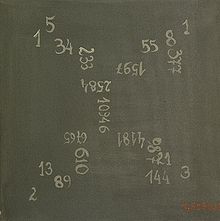 5 1
1 34 55 8
233 377
1597
2584
10946
6765 4181
610 987
13 21
89 144 3
2